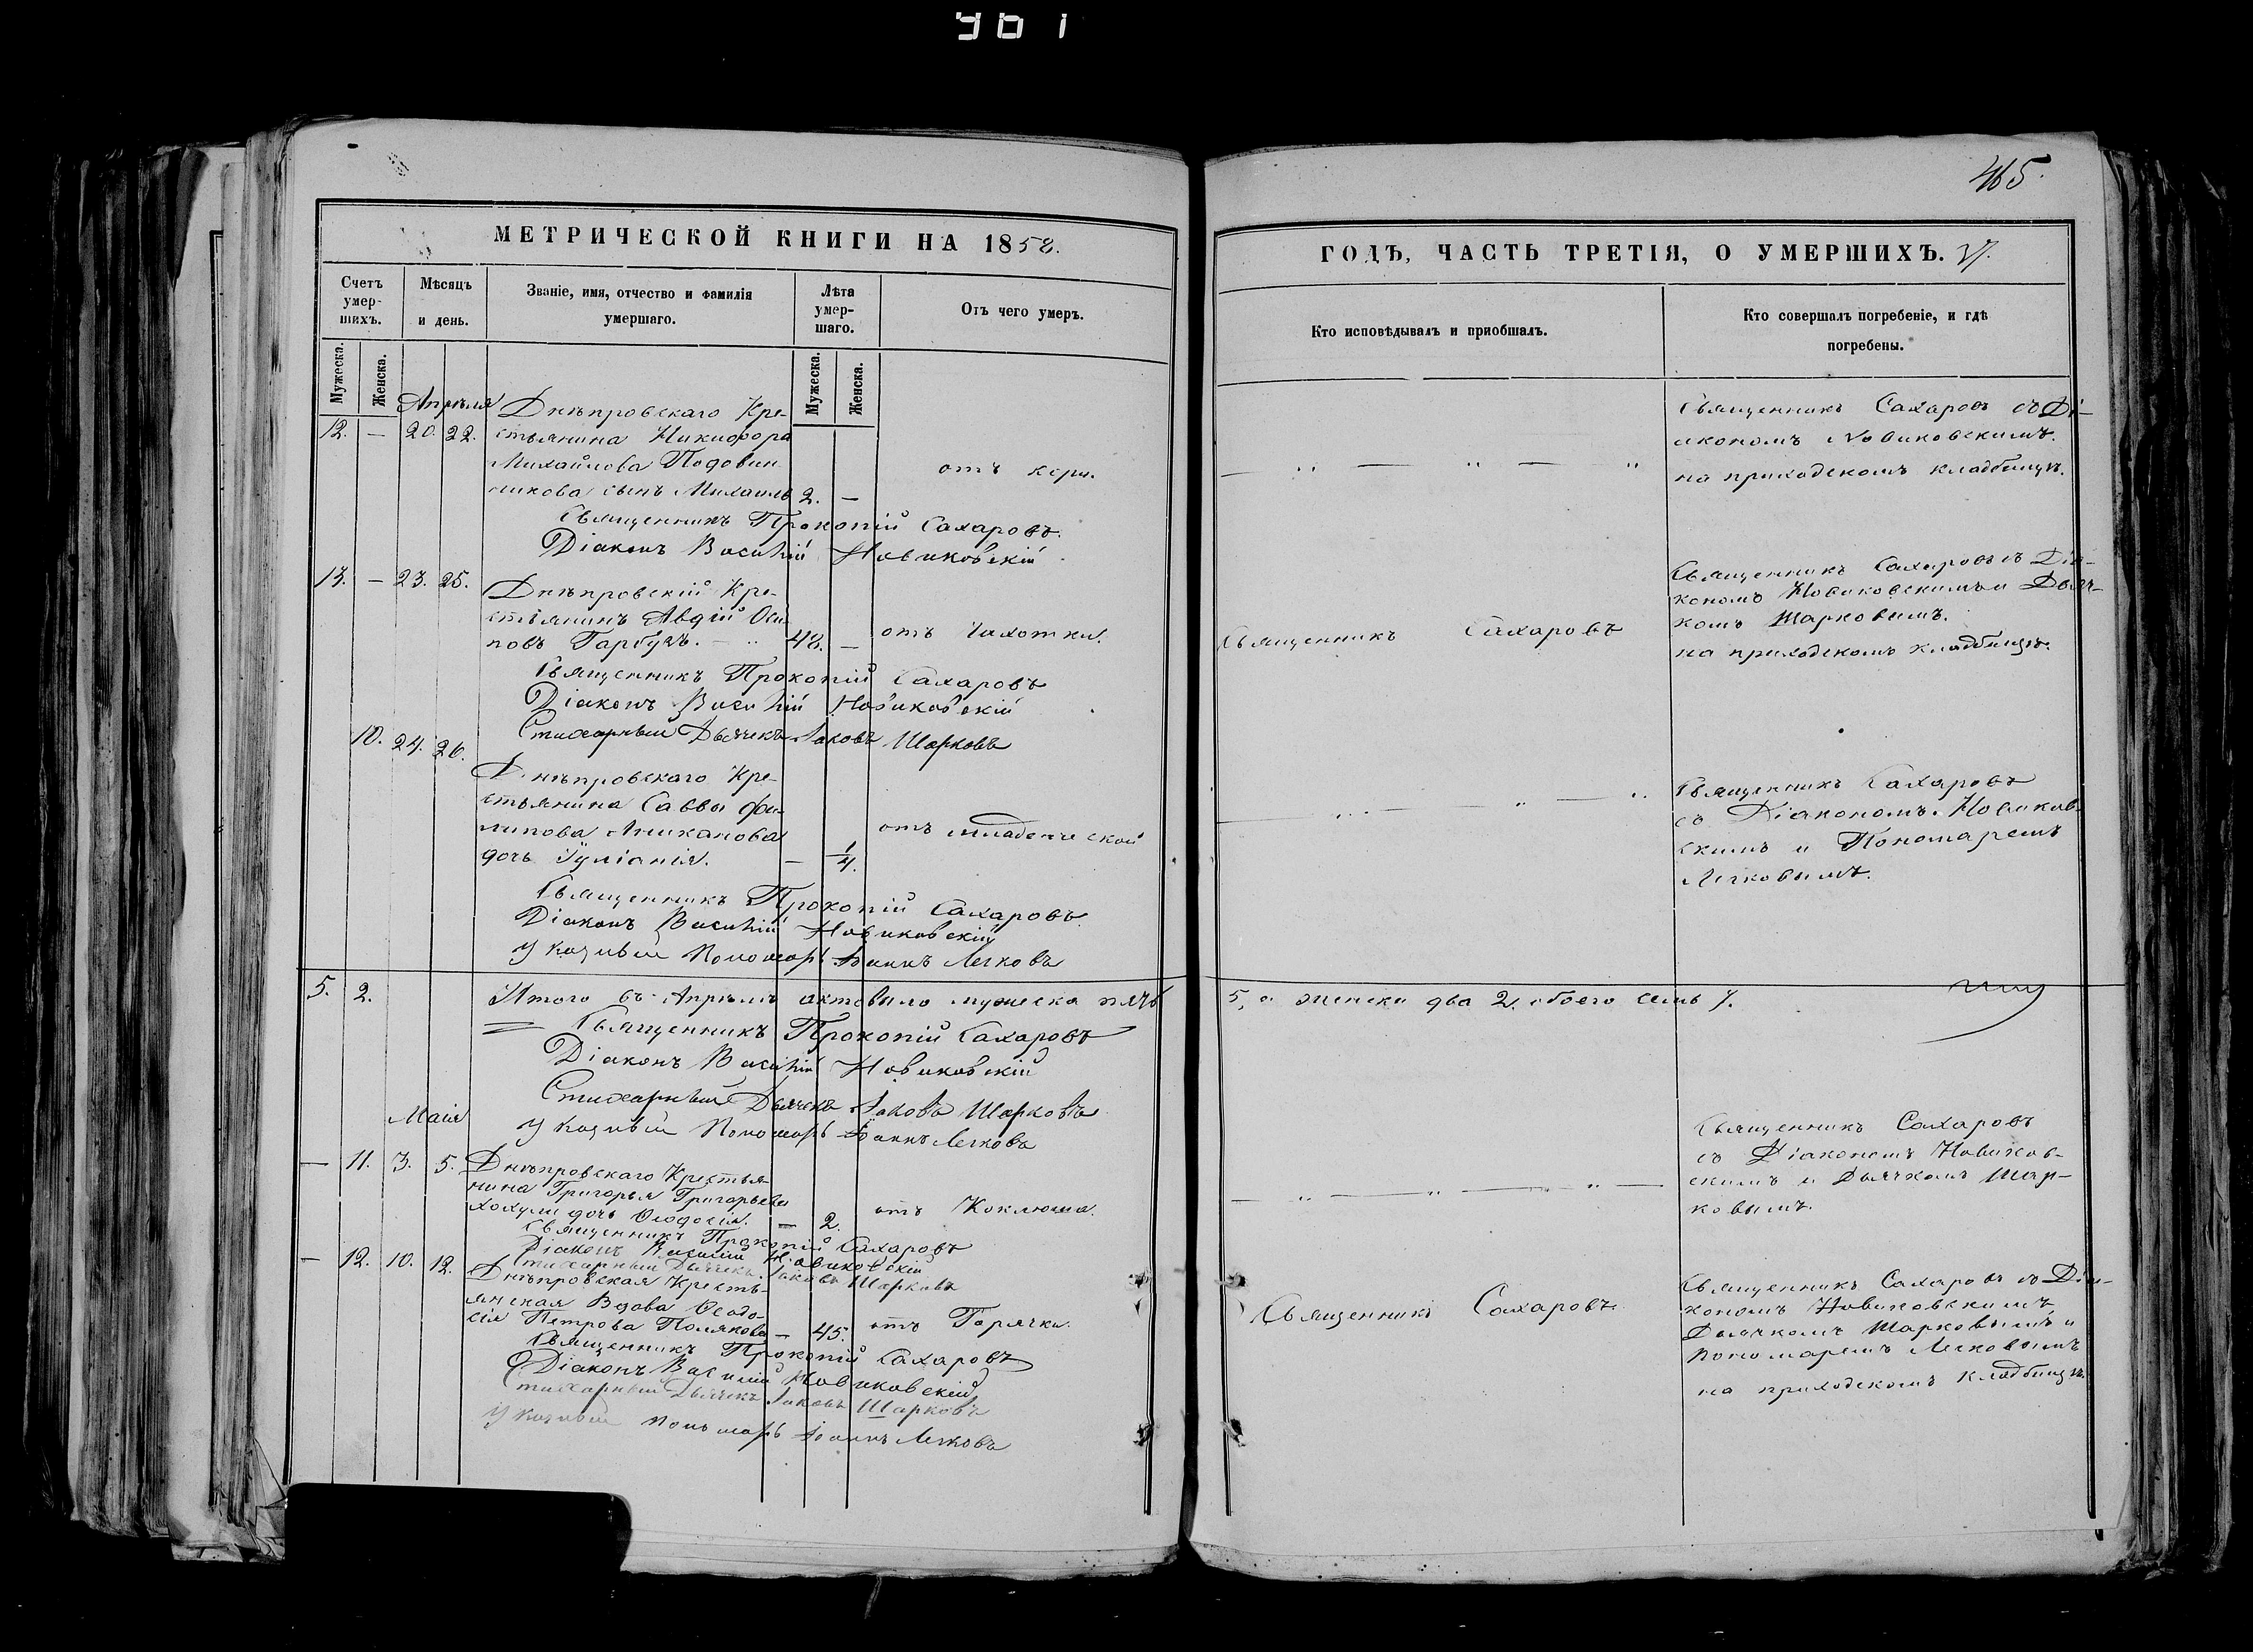 961
465.
МЕТРИЧЕСКОЙ КНИГИ НА 1858.
ГОДЪ, ЧАСТЬ ТРЕТІЯ, О УМЕРШИХЪ.
Счетъ умер-шихъ.
Мѣсяцъ и день.
Званіе, имя, отчество и фамилія умершаго.
Лѣта умер-шаго.
Отъ чего умеръ.
Кто исповѣдывалъ и пріобщалъ.
Кто совершалъ погребеніе, и гдѣ погребены.
Мужеска.
Женска.
Мужеска.
Женска.
Апрѣля
12. — 20. 22.
Днѣпровскаго Кре-
стьянина Никифора
Михайлова Подовин
никова сынъ Михаилъ 2. —
отъ кори.
Священникъ Сахаровъ съ Ді-
акономъ Новиковскимъ.
на приходскомъ кладбищѣ.
Священникъ Прокопій Сахаровъ.
Діаконъ Василій Новиковскій
13. — 23. 25.
Днѣпровскій Кре-
стьянинъ Авдій Оси
повъ Гарбузъ. — 48. —
отъ Чахотки.
Священникъ Сахаровъ
Священникъ Сахаровъ съ Діа-
кономъ Новиковскимъ и Дьяч-
комъ Шарковымъ.
на приходскомъ кладбищѣ.
Священникъ Прокопій Сахаровъ
Діаконъ Василій Новиковскій
Стихарный Дьячекъ Іаковъ Шарковъ
10. 24. 26.
Днѣпровскаго Кре-
стьянина Саввы Фи-
липова Аниканова
дочь Іуліанія. — 1/4.
отъ младенческой
Священникъ Сахаровъ
съ Діакономъ Новиков-
скимъ и Пономаремъ
Легковымъ.
Священникъ Прокопій Сахаровъ.
Діаконъ Василій Новиковскій
Указный Пономарь Іоаннъ Легковъ
5. 2.
Итого въ Апрѣлѣ актовъ было мужеска пять 5, а женска два 2, обоего семь 7.
Священникъ Прокопій Сахаровъ
Діаконъ Василій Новиковскій
Стихарный Дьячекъ Іаковъ Шарковъ
Указный Пономарь Іоаннъ Легковъ
Маія
— 11. 3. 5.
Днѣпровскаго Крестья-
нина Григорья Григорьева
Холули дочь Ѳеодосія. — 2.
отъ Коклюша.
Священникъ Сахаровъ
съ Діакономъ Новиков-
скимъ и Дьячкомъ Шар-
ковымъ.
Священникъ Прокопій Сахаровъ
Діаконъ Василій Новиковскій
Стихарный Дьячекъ Іаковъ Шарковъ
— 12. 10. 12.
Днѣпровская Кресть-
янская Вдова Ѳеодо-
сія Петрова Полякова — 45.
отъ Горячки.
Священникъ Сахаровъ
Священникъ Сахаровъ съ Діа-
кономъ Новиковскимъ,
Дьячкомъ Шарковымъ и
Пономаремъ Легковымъ
на приходскомъ кладбищѣ.
Священникъ Прокопій Сахаровъ
Діаконъ Василій Новиковскій
Стихарный Дьячекъ Іаковъ Шарковъ
Указный Пономарь Іоаннъ Легковъ